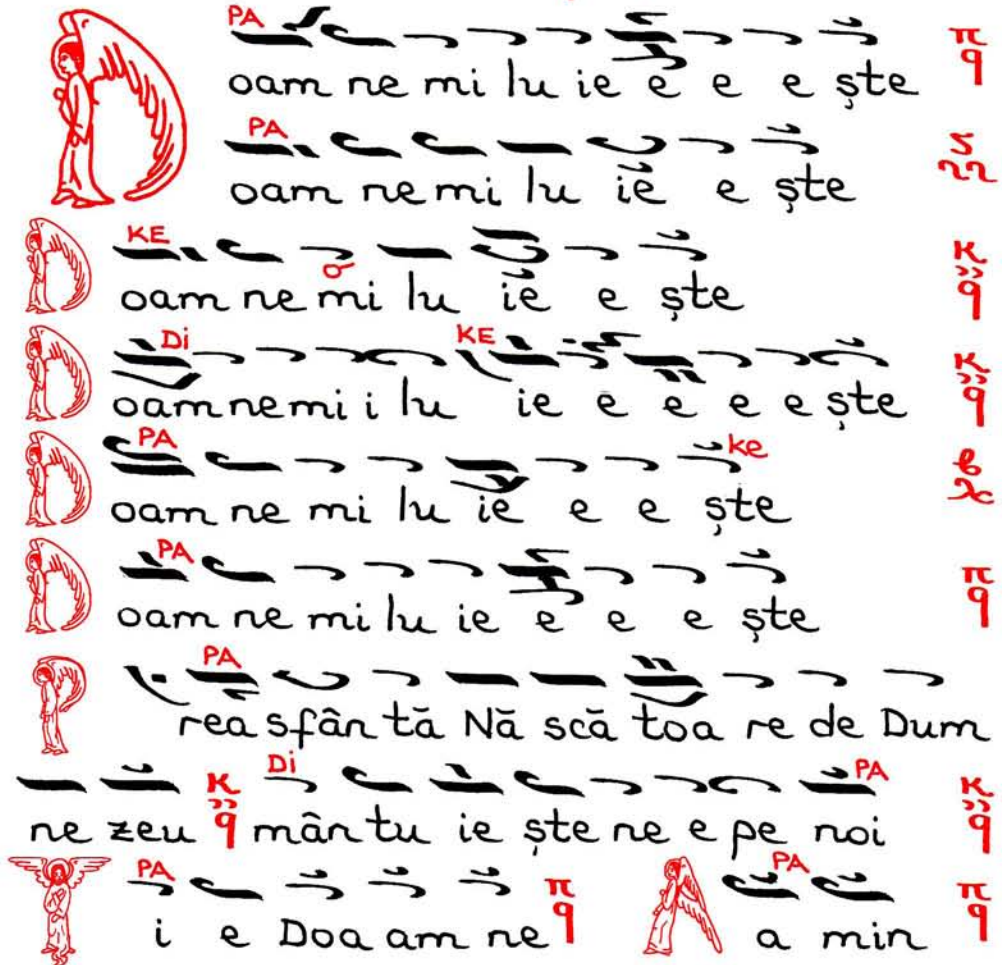 PA
Doam ne mi lu ie e e e ște
PA
oam ne mi lu ie e ște
KE
Doam ne mi lu ie e ște
Di KE
Doam ne mi i lu ie e e e e ște
PA ke
Doam ne mi lu ie e e ște
PA
Doam ne mi lu ie e e e ște
PA
Prea sfân tă Nă scă toa re de Dum
Di PA
ne zeu mân tu ie ște ne e pe noi
PA PA
Ți e Doa am ne A a min